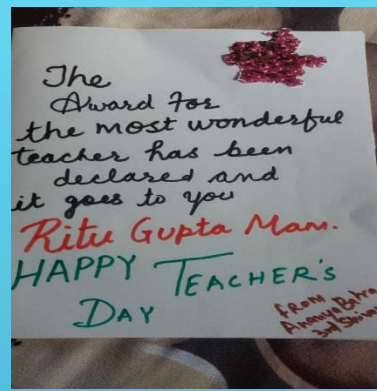 The
Award for
the most wonderful
teacher has been
declared and
it goes to you
Ritu Gupta Mam.
HAPPY TEACHER'S
DAY
from
Ananya Batra
3rd